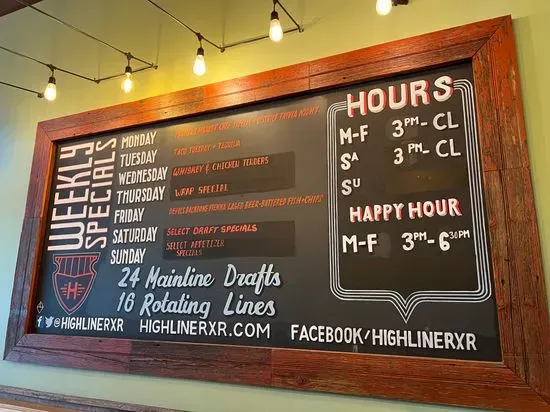 WEEKLY
SPECIALS
MONDAY
TUESDAY TACO TUESDAY + TEQUILA
WEDNESDAY WHISKEY & CHICKEN TENDERS
THURSDAY WRAP SPECIAL
FRIDAY DEVILS BACKBONE VIENNA LAGER BEER-BATTERED FISH+CHIPS
SATURDAY SELECT DRAFT SPECIALS
SUNDAY SELECT APPETIZER
SPECIALS
H
24 Mainline Drafts
16 Rotating Lines
@HIGHLINERXR HIGHLINERXR.COM FACEBOOK/HIGHLINERXR
HOURS
M-F 3PM-CL
SA 3PM-CL
SU
HAPPY HOUR
M-F 3PM-630PM